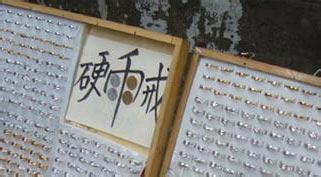 硬币戒